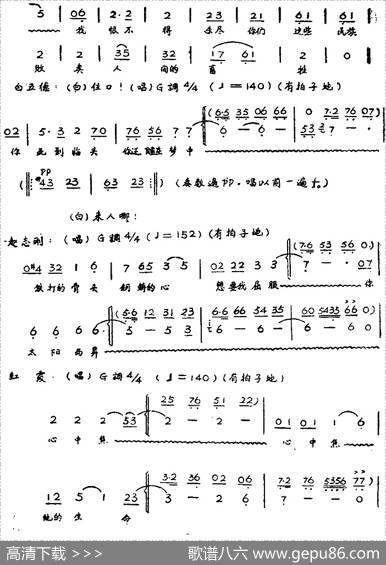 5 | 06 2·2 2 | 23 21 61 61 |
我 恨不得 生尽 你们 这些 民族
2 2 35 32 | 17 61 2 0 |
败类 人 间的 畜 牲
白五德：(白)住口！(唱)G調4/4 (♩=140) (有拍子地)
02 | 5·3 2 70 | 76 56 7 7 | (6·5 35 06 66 | 0 7·2 76 07)
6 - 6 - | 53 7 - ·
你 死到临头 你还睡在梦中
(‖: pp #43 23 | 63 23 :‖) (奏数遍PP·唱以前一遍f。)
(白)来人哪！
赵志刚：(唱)G調4/4 (♩=152) (有拍子地)
0#4 32 1 6 | 7 65 3 5 | 02 22 3 3 | (7·6 53 56 0)
7 - · 07
铁打的 骨头 鋼鑄的心 想要我屈服 你
6 6 6 6· | (5·6 12 31 23 | 6·6 66 54 35 | 60 5435 66 0)
5 - 5 3 | 6 - 6 - | 6 - - 0
太阳西昇
紅霞·(唱)G調4/4 (♩=140) (有拍子地)
2 2 2 53 | 25 76 51 22) | 01 01 1 6 |
2 - 2 - |
心中焦 心中焦
12 5 1 23 | 3·2 36 02 06 | 7·2 76 5356 77)
3 - 2 6 | 7 - - 0
他的生命
高清下载 >>>
歌谱八六 www.gepu86.com